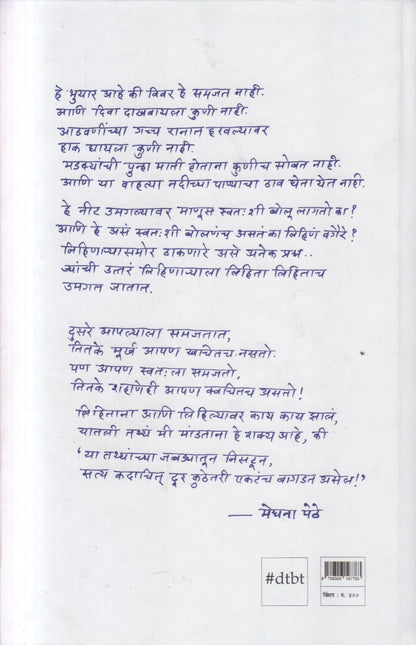 हे भुयार आहे की विवर हे समजत नाही.
आणि दिवा दाखवायला कुणी नाही.
आठवणींच्या गच्च रानात हरवल्यावर
हाक घायला कुणी नाही.
मडक्यांची पुन्हा माती होताना कुणीच सोबत नाही.
आणि या वाहत्या नदीच्या पाण्याचा ठाव घेता येत नाही.
हे नीट उमगल्यावर माणूस स्वतःशी बोलू लागतो का?
आणि हे असं स्वतःशी बोलणंच असतं का लिहिणं वगैरे?
लिहिणाऱ्यासमोर ठाकणारे असे अनेक प्रश्न..
ज्यांची उत्तरं लिहिणाऱ्याला लिहिता लिहिताच
उमगत जातात.
दुसरे आपल्याला समजतात,
तितके मूर्ख आपण खचितच नसतो.
पण आपण स्वतःला समजतो,
तितके शहाणेही आपण क्वचितच असतो!
लिहिताना आणि लिहिल्यावर काय काय झालं,
यातली तथ्यं मी मांडताना हे शक्य आहे, की
'या तथ्यांच्या जबड्यातून निसटून,
सत्य कदाचित् दूर कुठेतरी एकटंच वागडत असेल!'
— मेघना पेठे
#dtbt
किंमत : रु. ५००